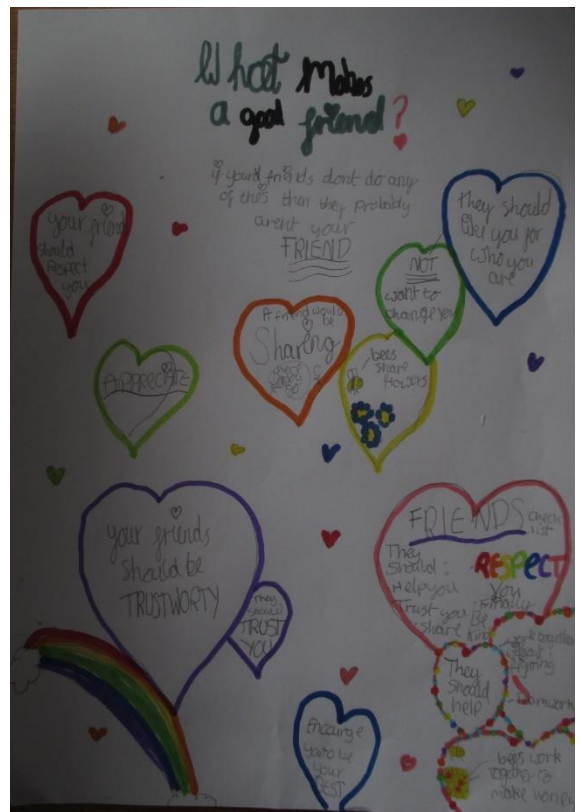 What Makes
a good friend?
if your friends dont do any
of this then they probably
arent your
FRIEND
your friend
should
respect
you
They should
like you for
who you
are
NOT
want to
change you
A friend would
be
Sharing
bees
share
flowers
APPRECIATE
your friends
should be
TRUSTWORTY
They
should
TRUST
YOU
FRIENDS check
list
They
should:
RESPECT
Help you
You
Trust you Be
Friendly
share kind
work together
without
They
should
help
teamwork
bees work
together to
make honey
Encourge
you to be
your
BEST